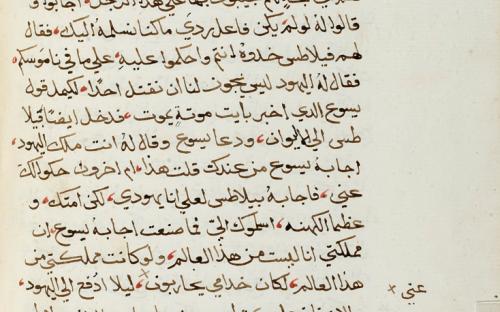 قالوا له لو لم يكن فاعل ردي ما كنا نسلمه اليك، فقال
لهم فيلاطس خدوه انتم واحكموا عليه علي ما في ناموسكم
فقال له اليهود ليس يجوز لنا ان نقتل احدًا، ليكمل قول
يسوع الذي اخبر بايت موتةٍ يموت، فدخل ايضًا فيلا
طس الي الايوان، ودعا يسوع وقال له انت ملك اليهود،
اجابه يسوع من عندك قلت هذا، ام اخرون حكوا لك
عني، فاجابه بيلاطس لعلي انا يهودي، لكن امتك، و
عظما الكهنه، اسلموك الي فما صنعت، اجابه يسوع، ان
مملكتي انا ليست من هذا العالم، ولو كانت مملكتي من
هذا العالم، لكان خدامي يحاربون، ليلا ادفع الي اليهود،
عني